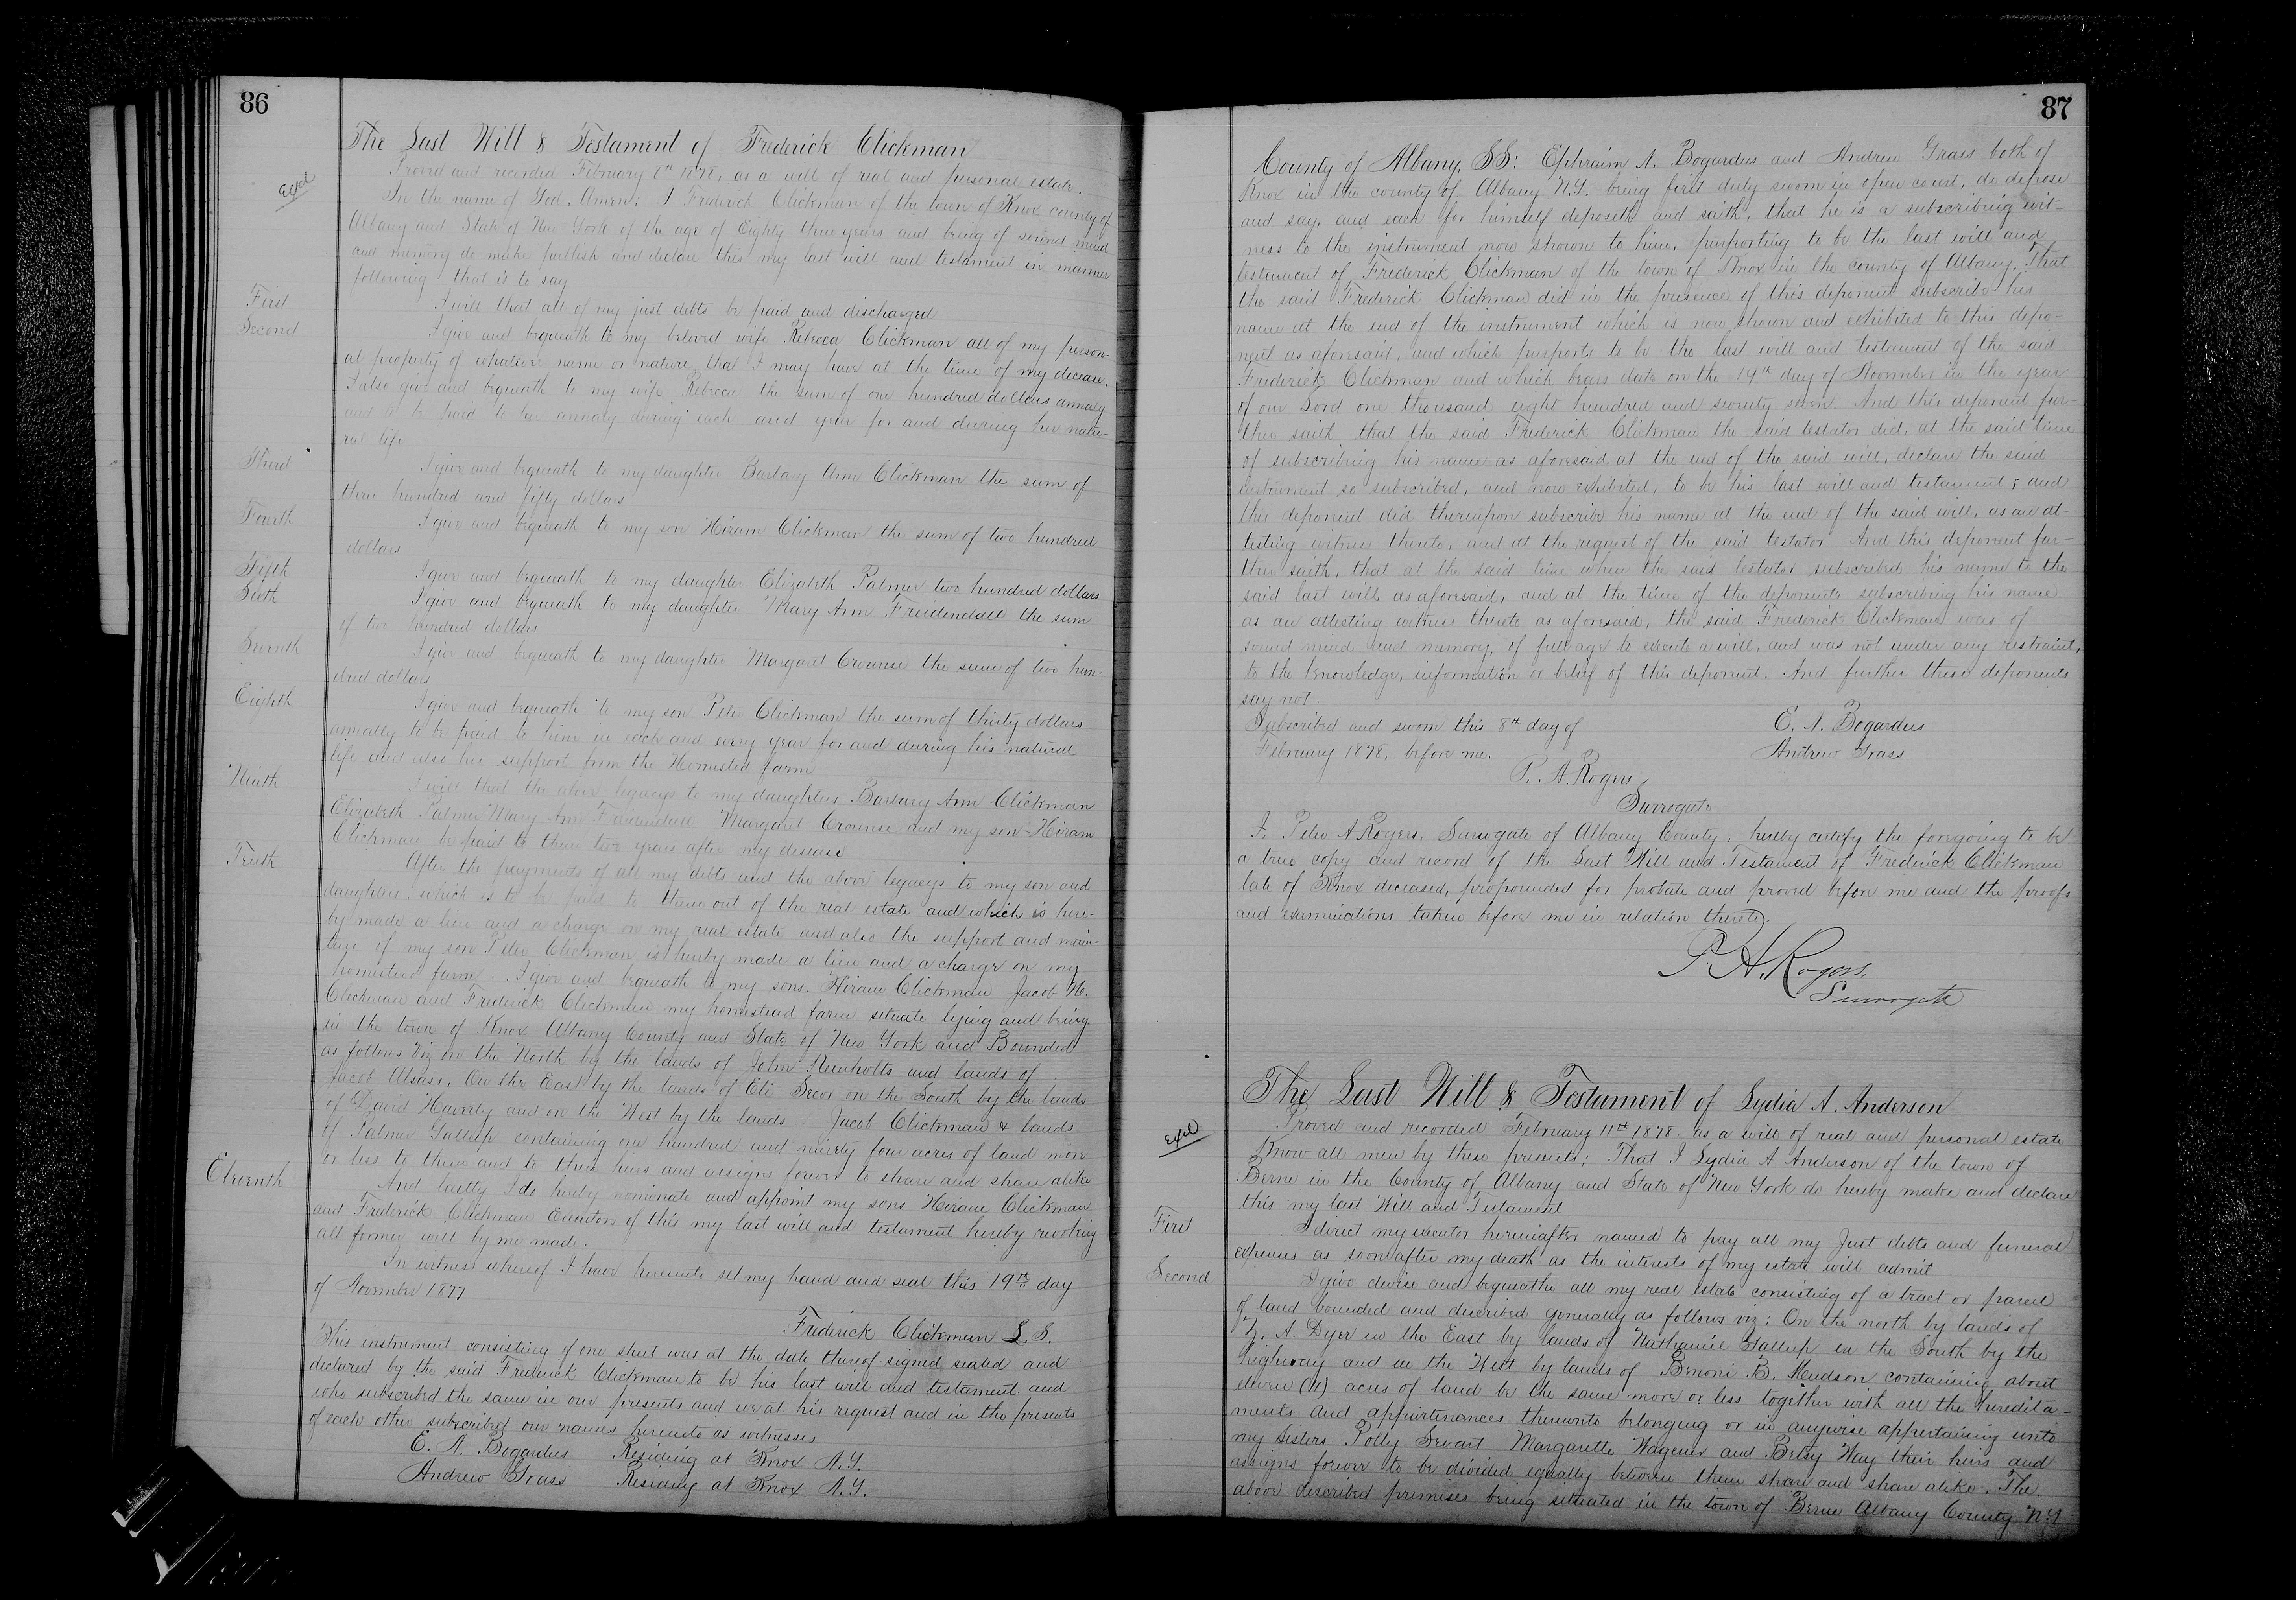 86
The Last Will & Testament of Frederick Clickman
Exd
Proved and recorded February 8th 1878, as a will of real and personal estate.
In the name of God, Amen: I Frederick Clickman of the town of Knox county of
Albany and State of New York of the age of Eighty three years and being of sound mind
and memory do make publish and declare this my last will and testament in manner
following that is to say
First I will that all of my just debts be paid and discharged
Second I give and bequeath to my beloved wife Rebecca Clickman all of my person-
al property of whatever name or nature that I may have at the time of my decease.
I also give and bequeath to my wife Rebecca the sum of one hundred dollars annaly
and to be paid to her annaly during each and year for and during her natu-
ral life
Third I give and bequeath to my daughter Barbary Ann Clickman the sum of
three hundred and fifty dollars
Fourth I give and bequeath to my son Hiram Clickman the sum of two hundred
dollars
Fifth I give and bequeath to my daughter Elizabeth Palmer two hundred dollars
Sixth I give and bequeath to my daughter Mary Ann Freidendall the sum
of two hundred dollars
Seventh I give and bequeath to my daughter Margaret Crounse the sum of two hun-
dred dollars
Eighth I give and bequeath to my son Peter Clickman the sum of thirty dollars
annually to be paid to him in each and every year for and during his natural
life and also his support from the Homested farm
Ninth I will that the above legacys to my daughters Barbary Ann Clickman
Elizabeth Palmer Mary Ann Freidendall Margaret Crounse and my son Hiram
Clickman be paid to them two years after my decease
Tenth After the payments of all my debts and the above legacys to my son and
daughters, which is to be paid to them out of the real estate and which is here-
by made a lien and a charge on my real estate and also the support and main-
tene of my son Peter Clickman is hereby made a lien and a charge on my
homestead farm. I give and bequeath to my sons. Hiram Clickman Jacob M.
Clickman and Frederick Clickman my homestead farm situate lying and being
in the town of Knox Albany County and State of New York and Bounded
as follows Viz on the North by the lands of John and lands of
Jacob On the East by the lands of Eli Secor on the South by the lands
of David Haverly and on the West by the lands Jacob Clickman & lands
of Palmer Gallup containing one hundred and ninety four acres of land more
or less to them and to their heirs and assigns forever to share and share alike
Eleventh And lastly I do hereby nominate and appoint my sons Hiram Clickman
and Frederick Clickman Executors of this my last will and testament hereby revoking
all former will by me made.
In witness whereof I have hereunto set my hand and seal this 19th day
of November 1877
Frederick Clickman L. S.
This instrument consisting of one sheet was at the date thereof signed sealed and
declared by the said Frederick Clickman to be his last will and testament and
who subscribed the same in our presents and we at his request and in the presents
of each other subscribed our names hereunto as witnesses
E. A. Bogardus Residing at Knox N.Y.
Andrew Grass Residing at Knox N.Y.
87
County of Albany, SS: Ephraim A. Bogardus and Andrew Grass both of
Knox in the county of Albany N.Y. being first duly sworn in open court, do depose
and say, and each for himself deposeth and saith, that he is a subscribing wit-
ness to the instrument now shown to him, purporting to be the last will and
testament of Frederick Clickman of the town of Knox in the county of Albany. That
the said Frederick Clickman did in the presence of this deponent subscribe his
name at the end of the instrument which is now shown and exhibited to this depo-
nent as aforesaid, and which purports to be the last will and testament of the said
Frederick Clickman and which bears date on the 19th day of November in the year
of our Lord one thousand eight hundred and seventy seven. And this deponent fur-
ther saith, that the said Frederick Clickman the said testator did, at the said time
of subscribing his name as aforesaid at the end of the said will, declare the said
instrument so subscribed, and now exhibited, to be his last will and testament; and
this deponent did thereupon subscribe his name at the end of the said will, as an at-
testing witness thereto, and at the request of the said testator And this deponent fur-
ther saith, that at the said time when the said testator subscribed his name to the
said last will, as aforesaid, and at the time of the deponents subscribing his name
as an attesting witness thereto as aforesaid, the said Frederick Clickman was of
sound mind and memory, of full age to execute a will, and was not under any restraint,
to the knowledge, information or belief of this deponent. And further these deponents
say not.
Subscribed and sworn this 8th day of E. A. Bogardus
February 1878, before me. Andrew Grass
P. A. Rogers
Surrogate
I Peter A Rogers, Surrogate of Albany County, hereby certify the foregoing to be
a true copy and record of the Last Will and Testament of Frederick Clickman
late of Knox deceased, propounded for probate and proved before me and the proofs
and examinations taken before me in relation thereto.
P. A. Rogers.
Surrogate
The Last Will & Testament of Lydia A. Anderson
Exd
Proved and recorded February 11th 1878, as a will of real and personal estate
Know all men by these presents; That I Lydia A Anderson of the town of
Berne in the County of Albany and State of New York do hereby make and declare
this my last Will and Testament
First I direct my executor hereinafter named to pay all my Just debts and funeral
expenses as soon after my death as the interests of my estate will admit
Second I give devise and bequeathe all my real estate consisting of a tract or parcel
of land bounded and described generally as follows viz: On the north by lands of
Z. A. Dyer in the East by lands of Nathaniel Gallup in the South by the
highway and in the West by lands of Benoni B. Hudson containing about
eleven (11) acres of land be the same more or less together with all the heredita-
ments and appurtenances thereunto belonging or in anywise appertaining unto
my sisters Polly Margarette Wagener and Betsy Way their heirs and
assigns forever to be divided equally between them share and share alike. The
above described premises being situated in the town of Berne Albany County N.Y